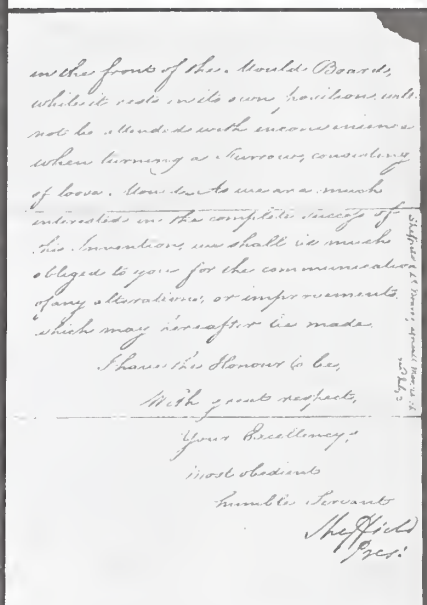 in the front of the Mould Board,
while it rests in its own position, will
not be attended with inconvenience
when turning a Furrow, consisting
of loose Mould. As we are much
interested in the complete success of
this Invention, we shall be much
obliged to you for the communication
of any alterations, or improvements
which may hereafter be made.
I have the Honour to be,
With great respect,
Your Excellency's
most obedient
humble Servant
Sheffield
Pres:
Sheffield